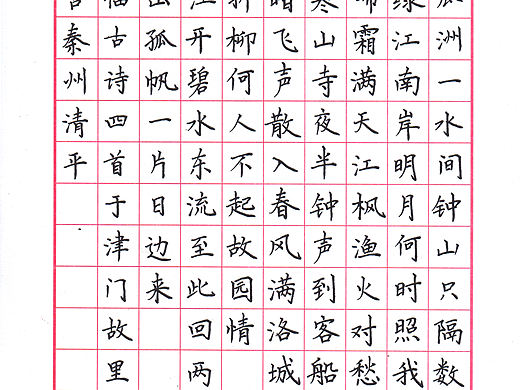 瓜洲一水间钟山只隔数
绿江南岸明月何时照我
啼霜满天江枫渔火对愁
寒山寺夜半钟声到客船
暗飞声散入春风满洛城
折柳何人不起故园情
江开碧水东流至此回两
出孤帆一片日边来
福古诗四首于津门故里
秦州清平